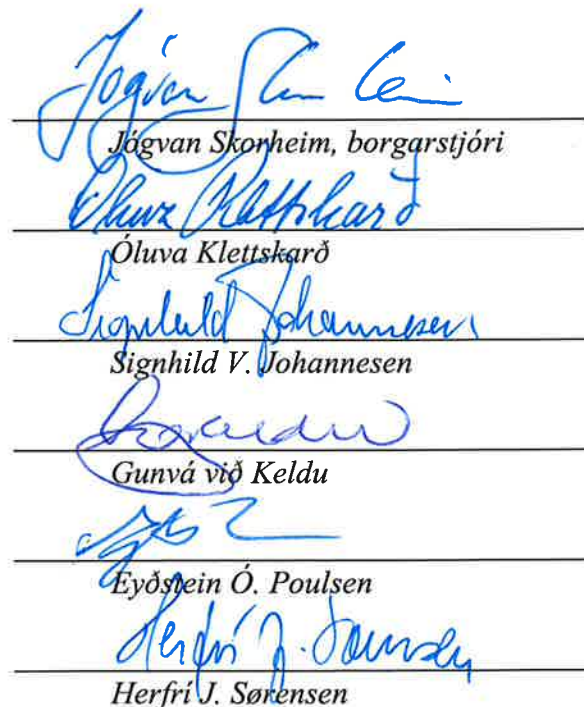 Jógvan Skorheim
Jógvan Skorheim, borgarstjóri
Óluva Klettskarð
Óluva Klettskarð
Signhild Johannesen
Signhild V. Johannesen
Gunvá við Keldu
Eyðstein Ó. Poulsen
Herfrí J. Sørensen
Herfrí J. Sørensen